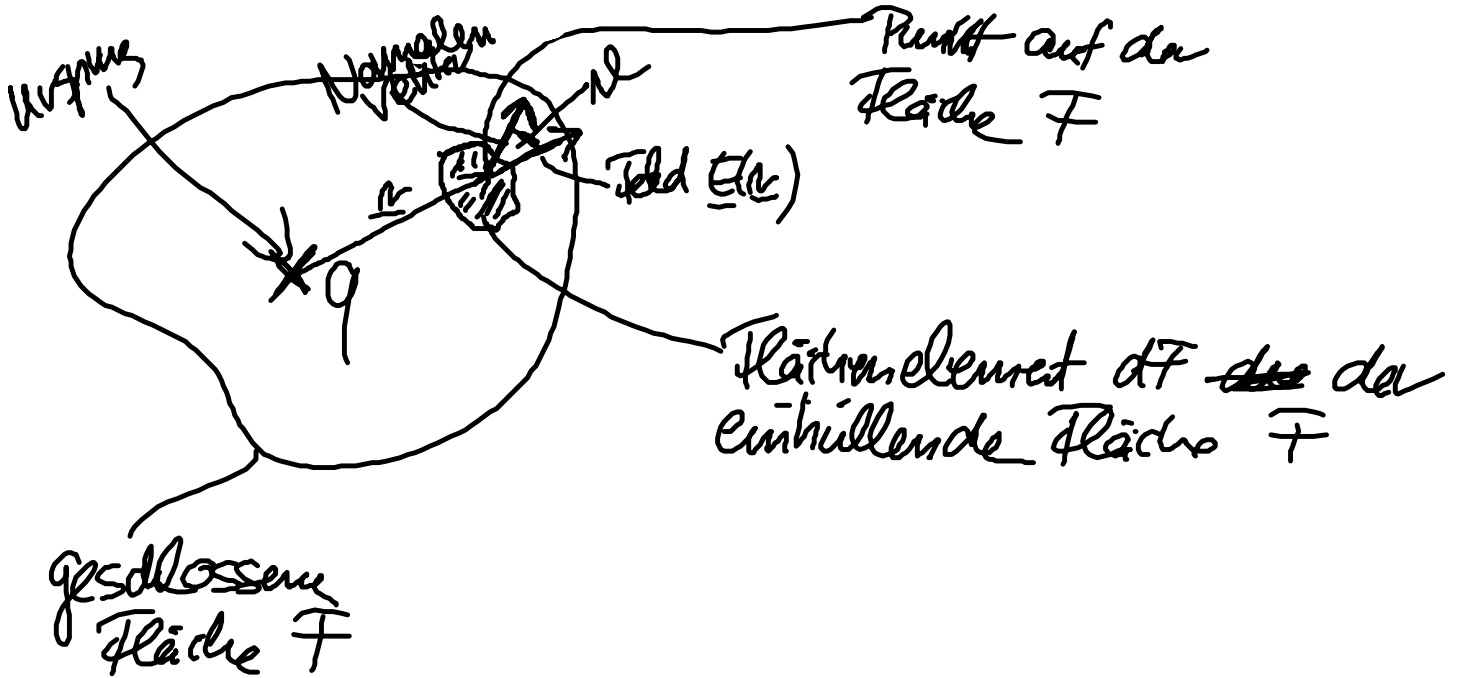 Ursprung
Normalen
vektor
Punkt auf der
Fläche F
r
Feld E(r)
q
Flächenelement dF der
einhüllende Fläche F
geschlossene
Fläche F